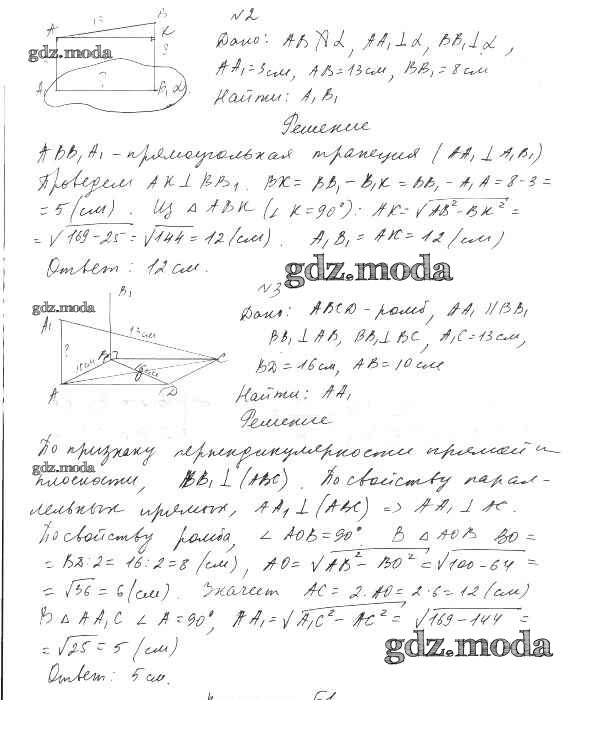 №2
Дано: AB ∦ α, AA₁ ⊥ α, BB₁ ⊥ α,
AA₁ = 3 см, AB = 13 см, BB₁ = 8 см
Найти: A₁B₁
Решение
ABB₁A₁ - прямоугольная трапеция (AA₁ ⊥ A₁B₁)
Проведем AK ⊥ BB₁. BK = BB₁ - B₁K = BB₁ - A₁A = 8 - 3 =
= 5 (см). Из △ABK (∠K = 90°): AK = √AB² - BK² =
= √169 - 25 = √144 = 12 (см). A₁B₁ = AK = 12 (см)
Ответ: 12 см.
A 13 B
K
3
?
A₁ B₁ α
gdz.moda
gdz.moda
№3
Дано: ABCD - ромб, AA₁ || BB₁
BB₁ ⊥ AB, BB₁ ⊥ BC, A₁C = 13 см,
BD = 16 см, AB = 10 см
Найти: AA₁
Решение
gdz.moda
B₁
A₁ 13 см
?
10 см B C
A D
По признаку перпендикулярности прямой и
плоскости, BB₁ ⊥ (ABC). По свойству парал-
лельных прямых, AA₁ ⊥ (ABC) => AA₁ ⊥ AC.
По свойству ромба, ∠AOB = 90°. В △AOB BO =
= BD:2 = 16:2 = 8 (см), AO = √AB² - BO² = √100 - 64 =
= √36 = 6 (см). Значит AC = 2·AO = 2·6 = 12 (см)
В △AA₁C ∠A = 90°, AA₁ = √A₁C² - AC² = √169 - 144 =
= √25 = 5 (см)
Ответ: 5 см.
gdz.moda
gdz.moda